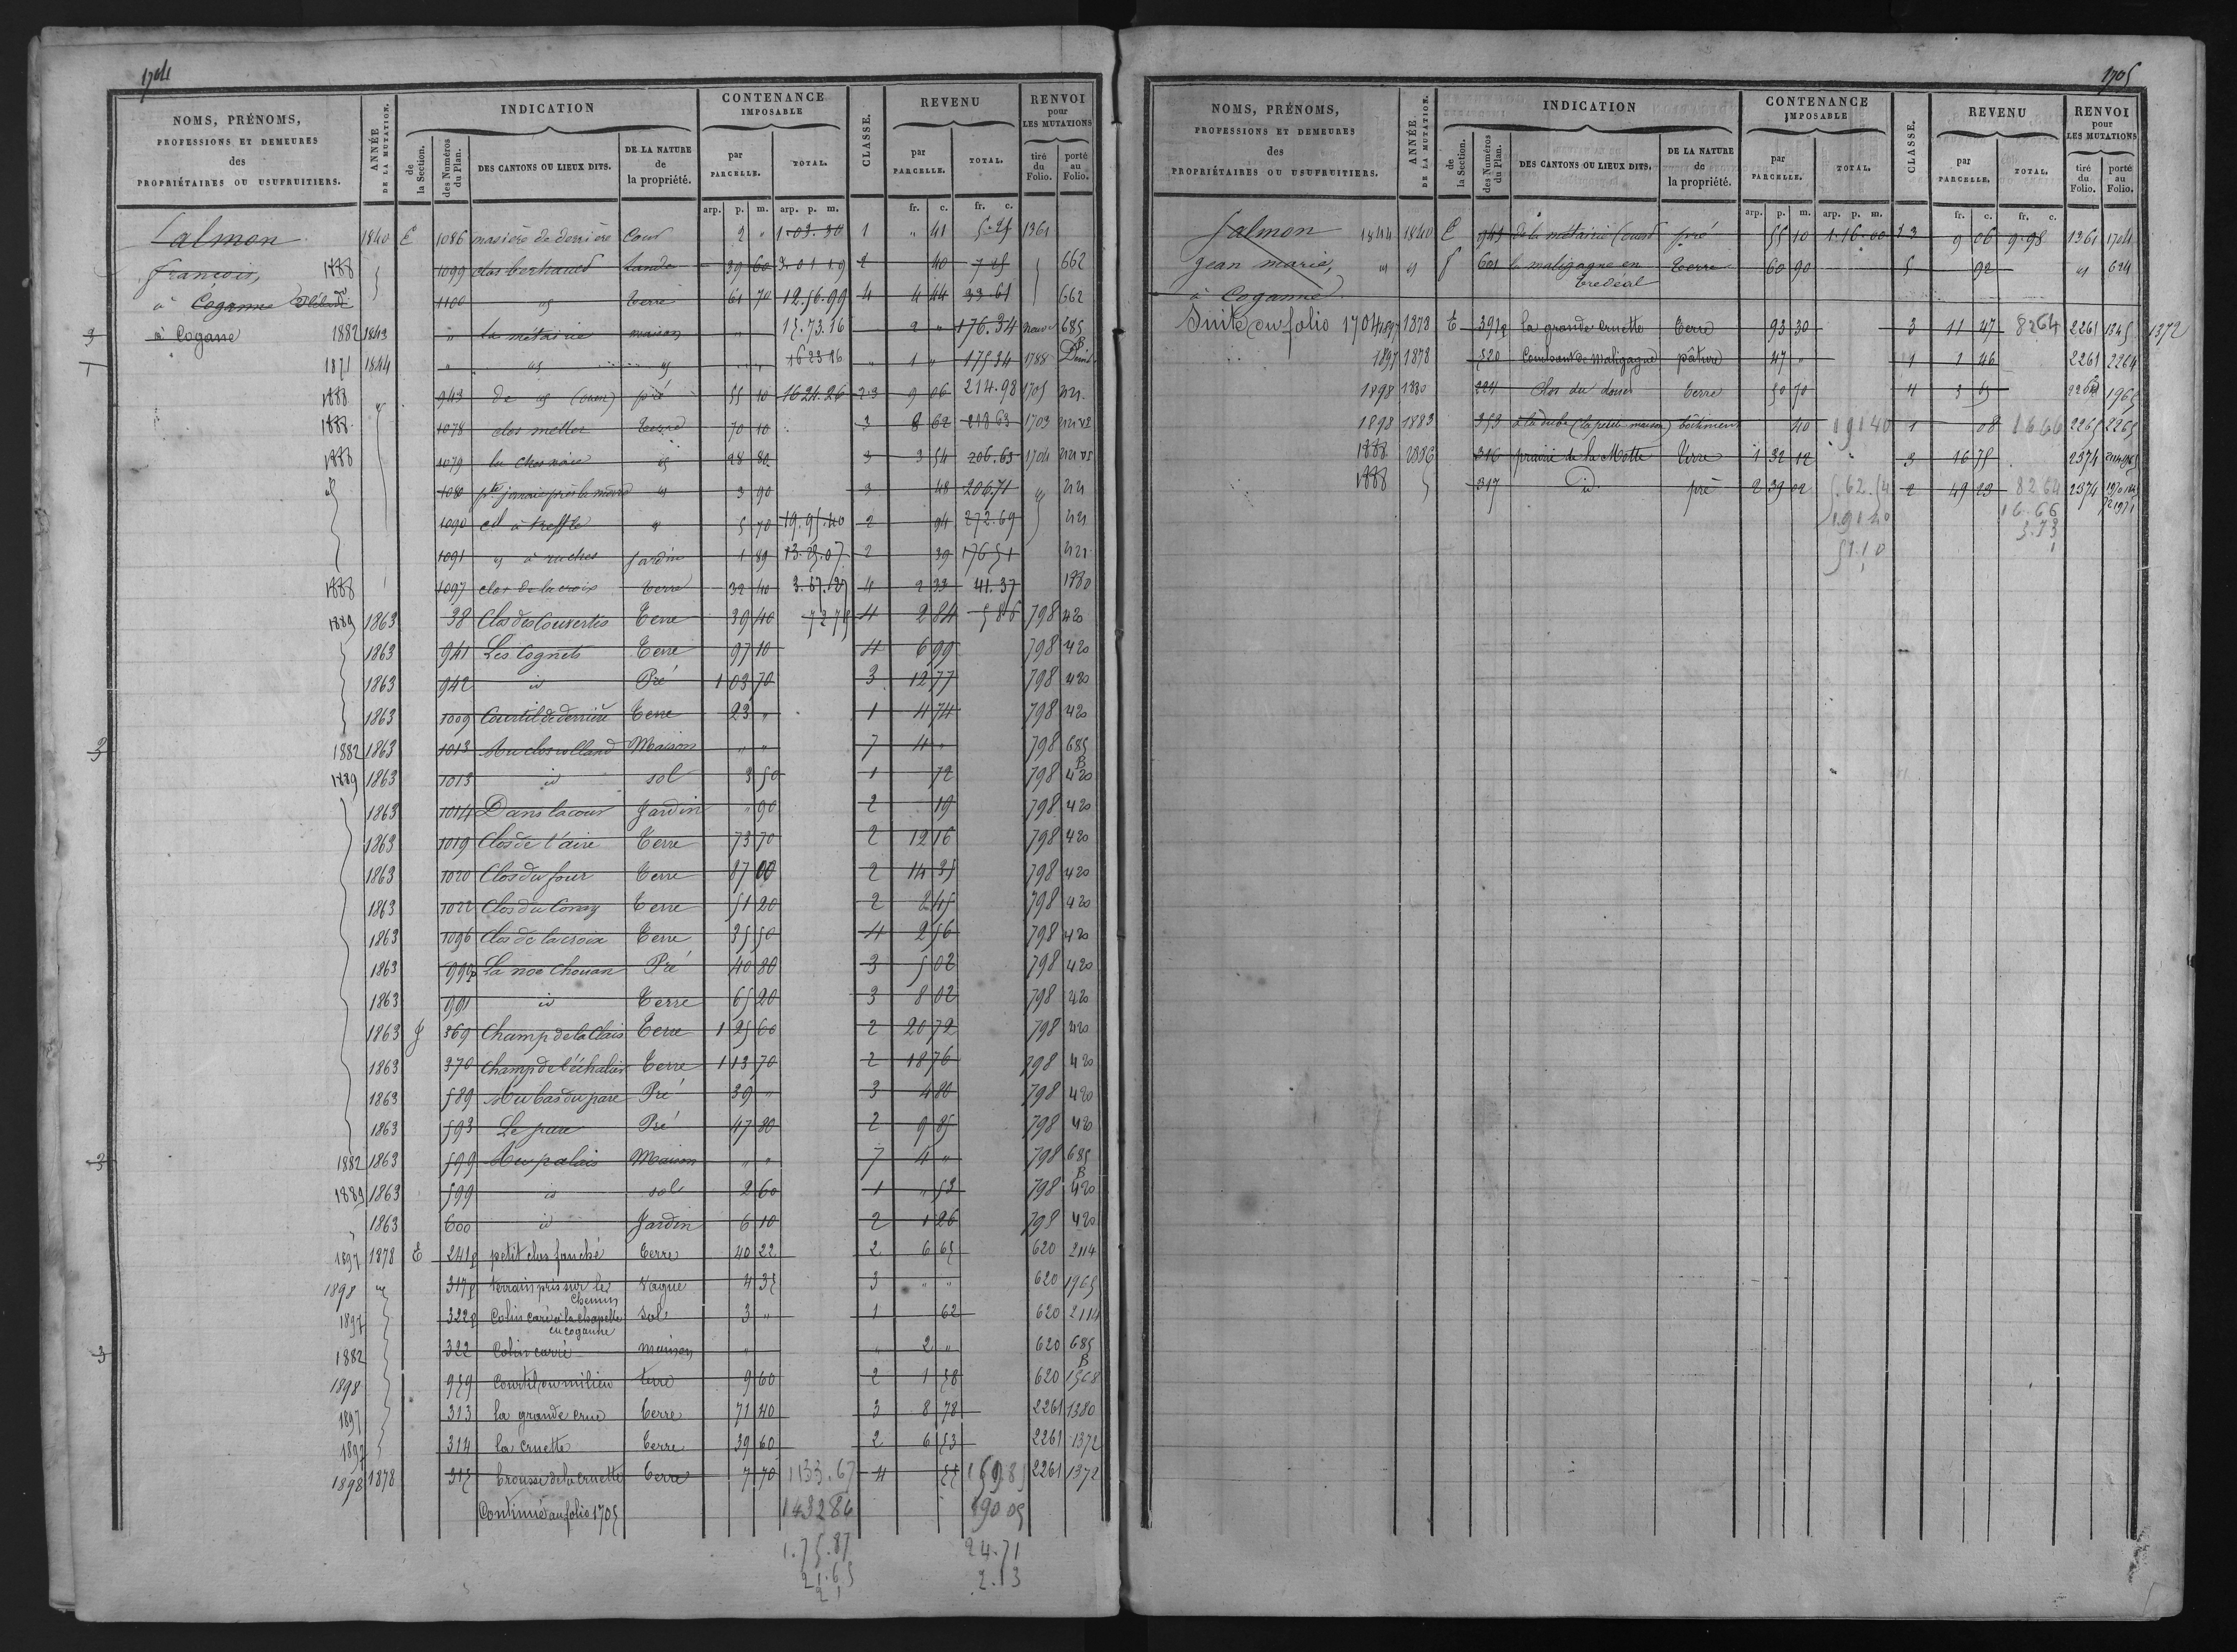 1704
NOMS, PRÉNOMS, PROFESSIONS ET DEMEURES des PROPRIÉTAIRES OU USUFRUITIERS.
ANNÉE DE LA MUTATION.
INDICATION
de la Section.
des Numéros du Plan.
DES CANTONS OU LIEUX DITS.
DE LA NATURE de la propriété.
CONTENANCE IMPOSABLE
par PARCELLE.
TOTAL.
CLASSE.
REVENU
par PARCELLE.
TOTAL.
RENVOI pour LES MUTATIONS
tiré du Folio.
porté au Folio.
arp. p. m. arp. p. m. fr. c. fr. c.
Salmon 1840 E 1086 masière de derrière Cour 2 " 1.03.30 1 " 41 5.25 1361
françois, 1888 1099 clos berhaud Lande 39 60 2 40 662
à Coganne 1100 id Terre 61 70 12.56.99 4 4 44 33.61 662
à Coganne 1882 1843 " la métairie maison " 15.73.16 2 " 176.34 685 B
1871 1844 " id id " 16 23 16 " 1 " 175.34 1788
1888 943 de id (ouest) pré 55 10 16 21.26 2-3 9 06 214.98 1705
1888 1078 clos mellor Terre 70 10 3 8 62 1703
1888 1079 la chesnaie id 28 80 3 3 54 206.63 1704
1080 id 3 90 3 48 206.71
1090 5 70 19.95.40 2 94 272.69
1091 id à ruches Jardin 1 89 13.25.07 2 39 176 51
1888 1097 clos de la croix Terre 32 40 3.67.29 4 2 33 41.37 1880
1889 1863 38 Clos des Couvertes Terre 39 40 4 2 84 798 420
1863 941 Les Cognets Terre 97 10 4 6 99 798 420
1863 942 id Pré 1 03 70 3 12 77 798 420
1863 1009 Courtil de derrière Terre 23 " 1 4 74 798 420
1882 1863 1013 Au clos rolland Maison " " 7 4 " 798 685 B
1889 1863 1013 id sol 3 50 1 72 798 420
1863 1014 Dans la cour Jardin " 90 2 19 798 420
1863 1019 Clos de l'aire Terre 73 70 2 12 16 798 420
1863 1020 Clos du four Terre 87 00 2 14 35 798 420
1863 1022 Clos du Terre 51 20 2 798 420
1863 1096 Clos de la croix Terre 35 50 4 2 56 798 420
1863 999p La noe Chouan Pré 40 80 3 5 02 798 420
1863 991 id Terre 65 20 3 8 02 798 420
1863 J 369 Champ de la Clais Terre 1 25 60 2 20 72 798 420
1863 370 Champ de l'échalier Terre 1 13 70 2 18 76 798 420
1863 589 Au bas du parc Pré 39 " 3 4 80 798 420
1863 593 Le parc Pré 47 80 2 9 85 798 420
1882 1863 599 Au palais Maison " " 7 4 " 798 685 B
1889 1863 599 id sol 2 60 1 " 53 798 420
" 1863 600 id Jardin 6 10 2 1 26 798 420
1897 1878 E 241p petit clos fauché Terre 40 22 2 6 65 620 2114
1898 id 317p terrain pris sur le chemin Vague 4 35 3 " " 620 1965
1897 322p Colin caré à la chapelle en coganne Sol 3 " 1 62 620 2114
1882 322 Colin carré maison " " 2 " 620 685 B
1898 959 Courtil du milieu terre 9 60 2 1 58 620 1568
1897 313 la grande crue Terre 71 40 3 8 78 2261 1380
1897 314 la cruette Terre 39 60 2 6 53 2261 1372
1898 1878 315 brousse de la cruette Terre 7 70 1133.67 4 55 159 85 2261 1372
Continué au folio 1705 1432 86 190 05
1.75.87 24.71
21.65 2.13
21
1705
NOMS, PRÉNOMS, PROFESSIONS ET DEMEURES des PROPRIÉTAIRES OU USUFRUITIERS.
ANNÉE DE LA MUTATION.
INDICATION
de la Section.
des Numéros du Plan.
DES CANTONS OU LIEUX DITS.
DE LA NATURE de la propriété.
CONTENANCE IMPOSABLE
par PARCELLE.
TOTAL.
CLASSE.
REVENU
par PARCELLE.
TOTAL.
RENVOI pour LES MUTATIONS
tiré du Folio.
porté au Folio.
arp. p. m. arp. p. m. fr. c. fr. c.
Salmon 1844 1840 E 943 de la métairie (ouest) pré 55 10 1.16.00 2 3 9 06 9.98 1361 1704
jean marie, id id f 601 la maligagne en tredéal Terre 60 90 5 92 id 624
à Coganne
Suite du folio 1704 1897 1878 E 391p la grande cruette Terre 93 30 3 11 47 82 64 2261 1345 1372
1897 1878 320 Couchant de maligagne pâture 47 " 1 1 46 2261 2264
1898 1880 224 Clos du douet Terre 50 70 4 3 65 1965
1898 1883 353 à la dube (la petite maison) bâtiment 40 191 40 1 08 16 66 2265 2265
1888 1886 316 prairie de la Motte Terre 1 32 12 3 16 75 2374
1888 317 id. pré 2 39 02 5.62.54 2 49 23 82 64 2374
191 40 16.66
51.10 3.73